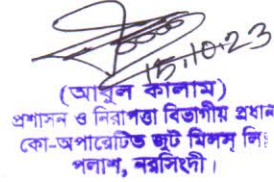 15.10.23
(আবুল কালাম)
প্রশাসন ও নিরাপত্তা বিভাগীয় প্রধান
কো-অপারেটিভ জুট মিলস্ লিঃ
পলাশ, নরসিংদী।